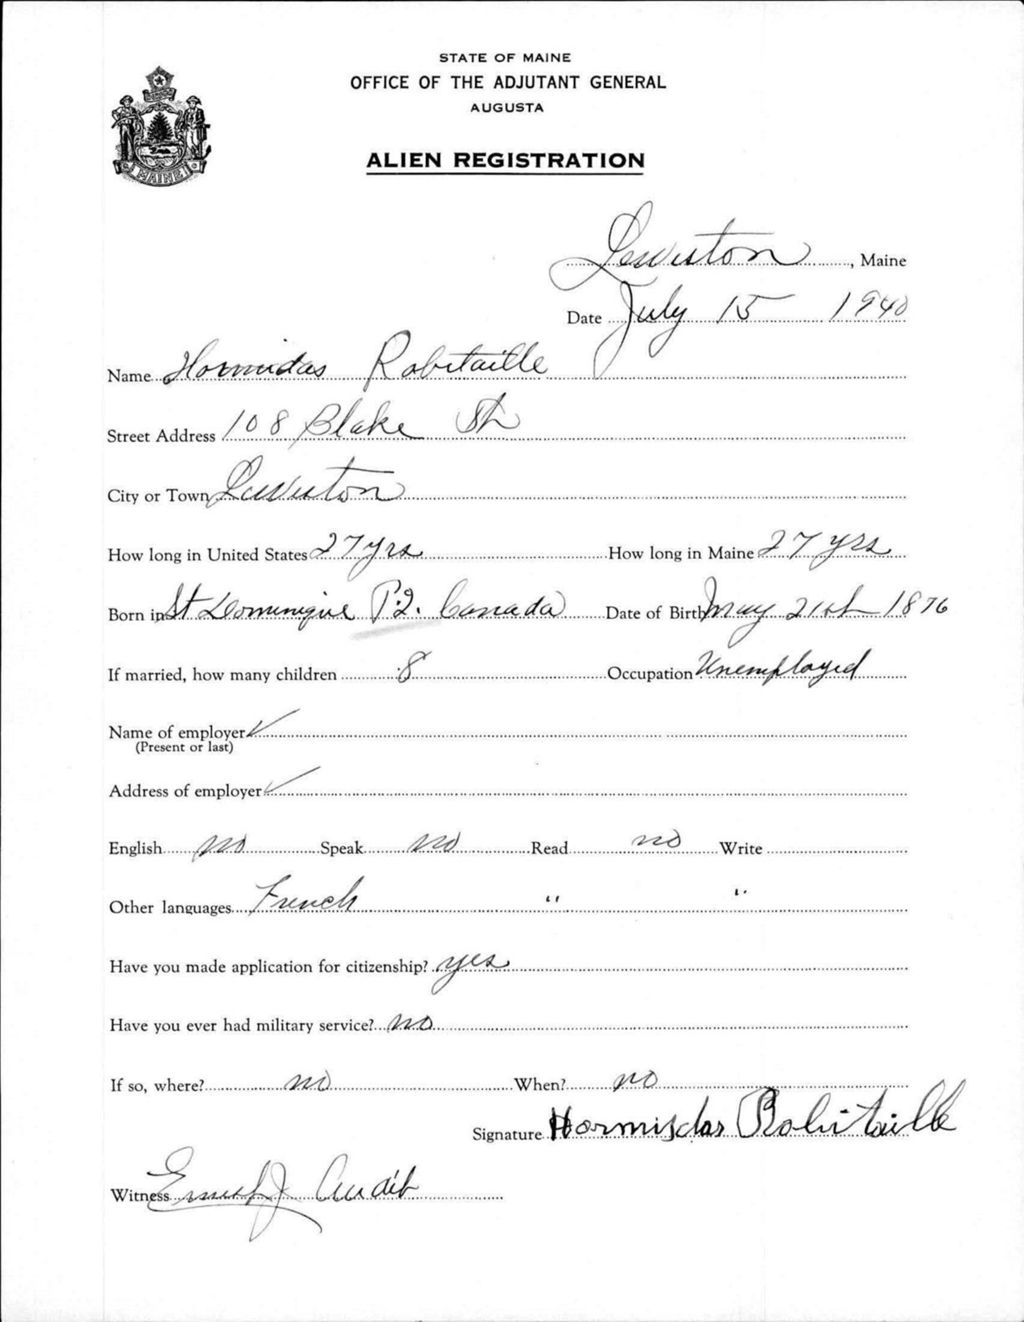 STATE OF MAINE
OFFICE OF THE ADJUTANT GENERAL
AUGUSTA
MAINE
ALIEN REGISTRATION
Lewiston, Maine
Date July 15 1940
Name Hormidas Robitaille
Street Address 108 Blake St
City or Town Lewiston
How long in United States 27 yrs How long in Maine 27 yrs
Born in St Dominique P.Q. Canada Date of Birth May 21st 1876
If married, how many children 8 Occupation Unemployed
Name of employer ✓
(Present or last)
Address of employer ✓
English no Speak no Read no Write
Other languages French " "
Have you made application for citizenship? yes
Have you ever had military service? no
If so, where? no When? no
Signature Hormisdas Robitaille
Witness Ernest J Audit